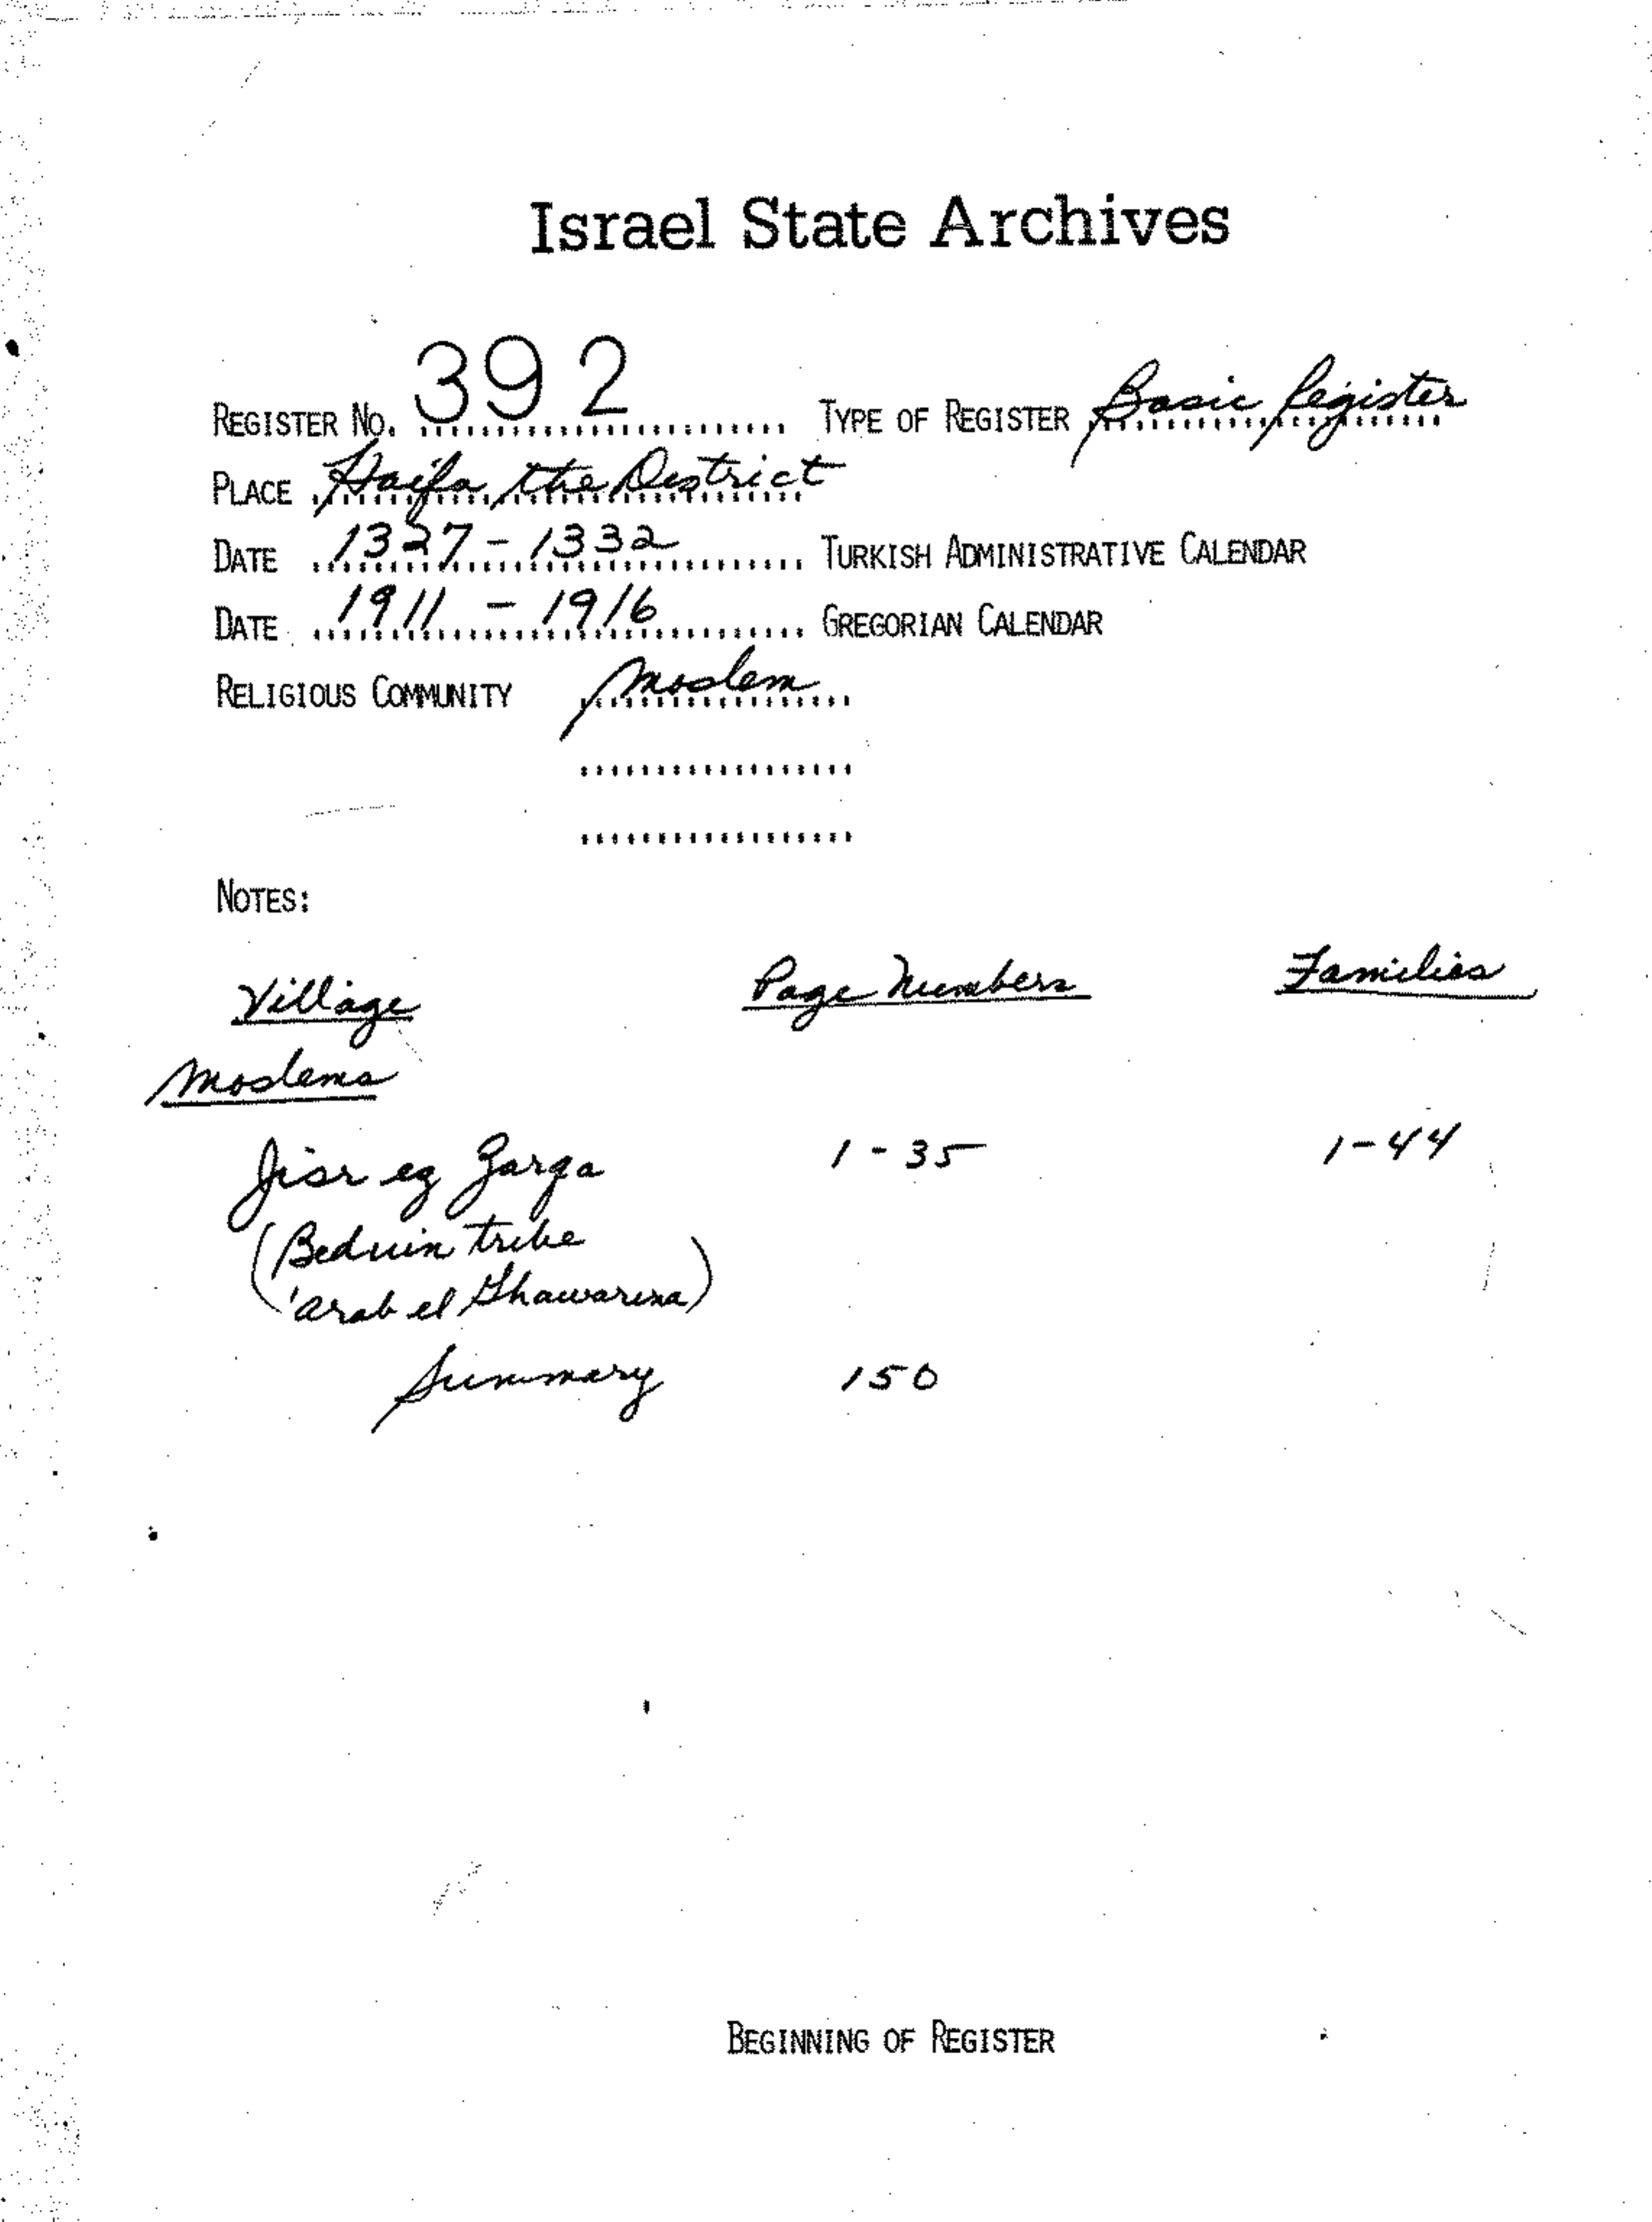 Israel State Archives
REGISTER NO. 392 TYPE OF REGISTER Basic Register
PLACE Haifa, the District
DATE 1327-1332 TURKISH ADMINISTRATIVE CALENDAR
DATE 1911 - 1916 GREGORIAN CALENDAR
RELIGIOUS COMMUNITY Moslem
NOTES:
Village Page Numbers Families
Moslems
Jisr ez Zarqa 1-35 1-44
(Beduin tribe
'Arab el Ghawarina)
Summary 150
BEGINNING OF REGISTER